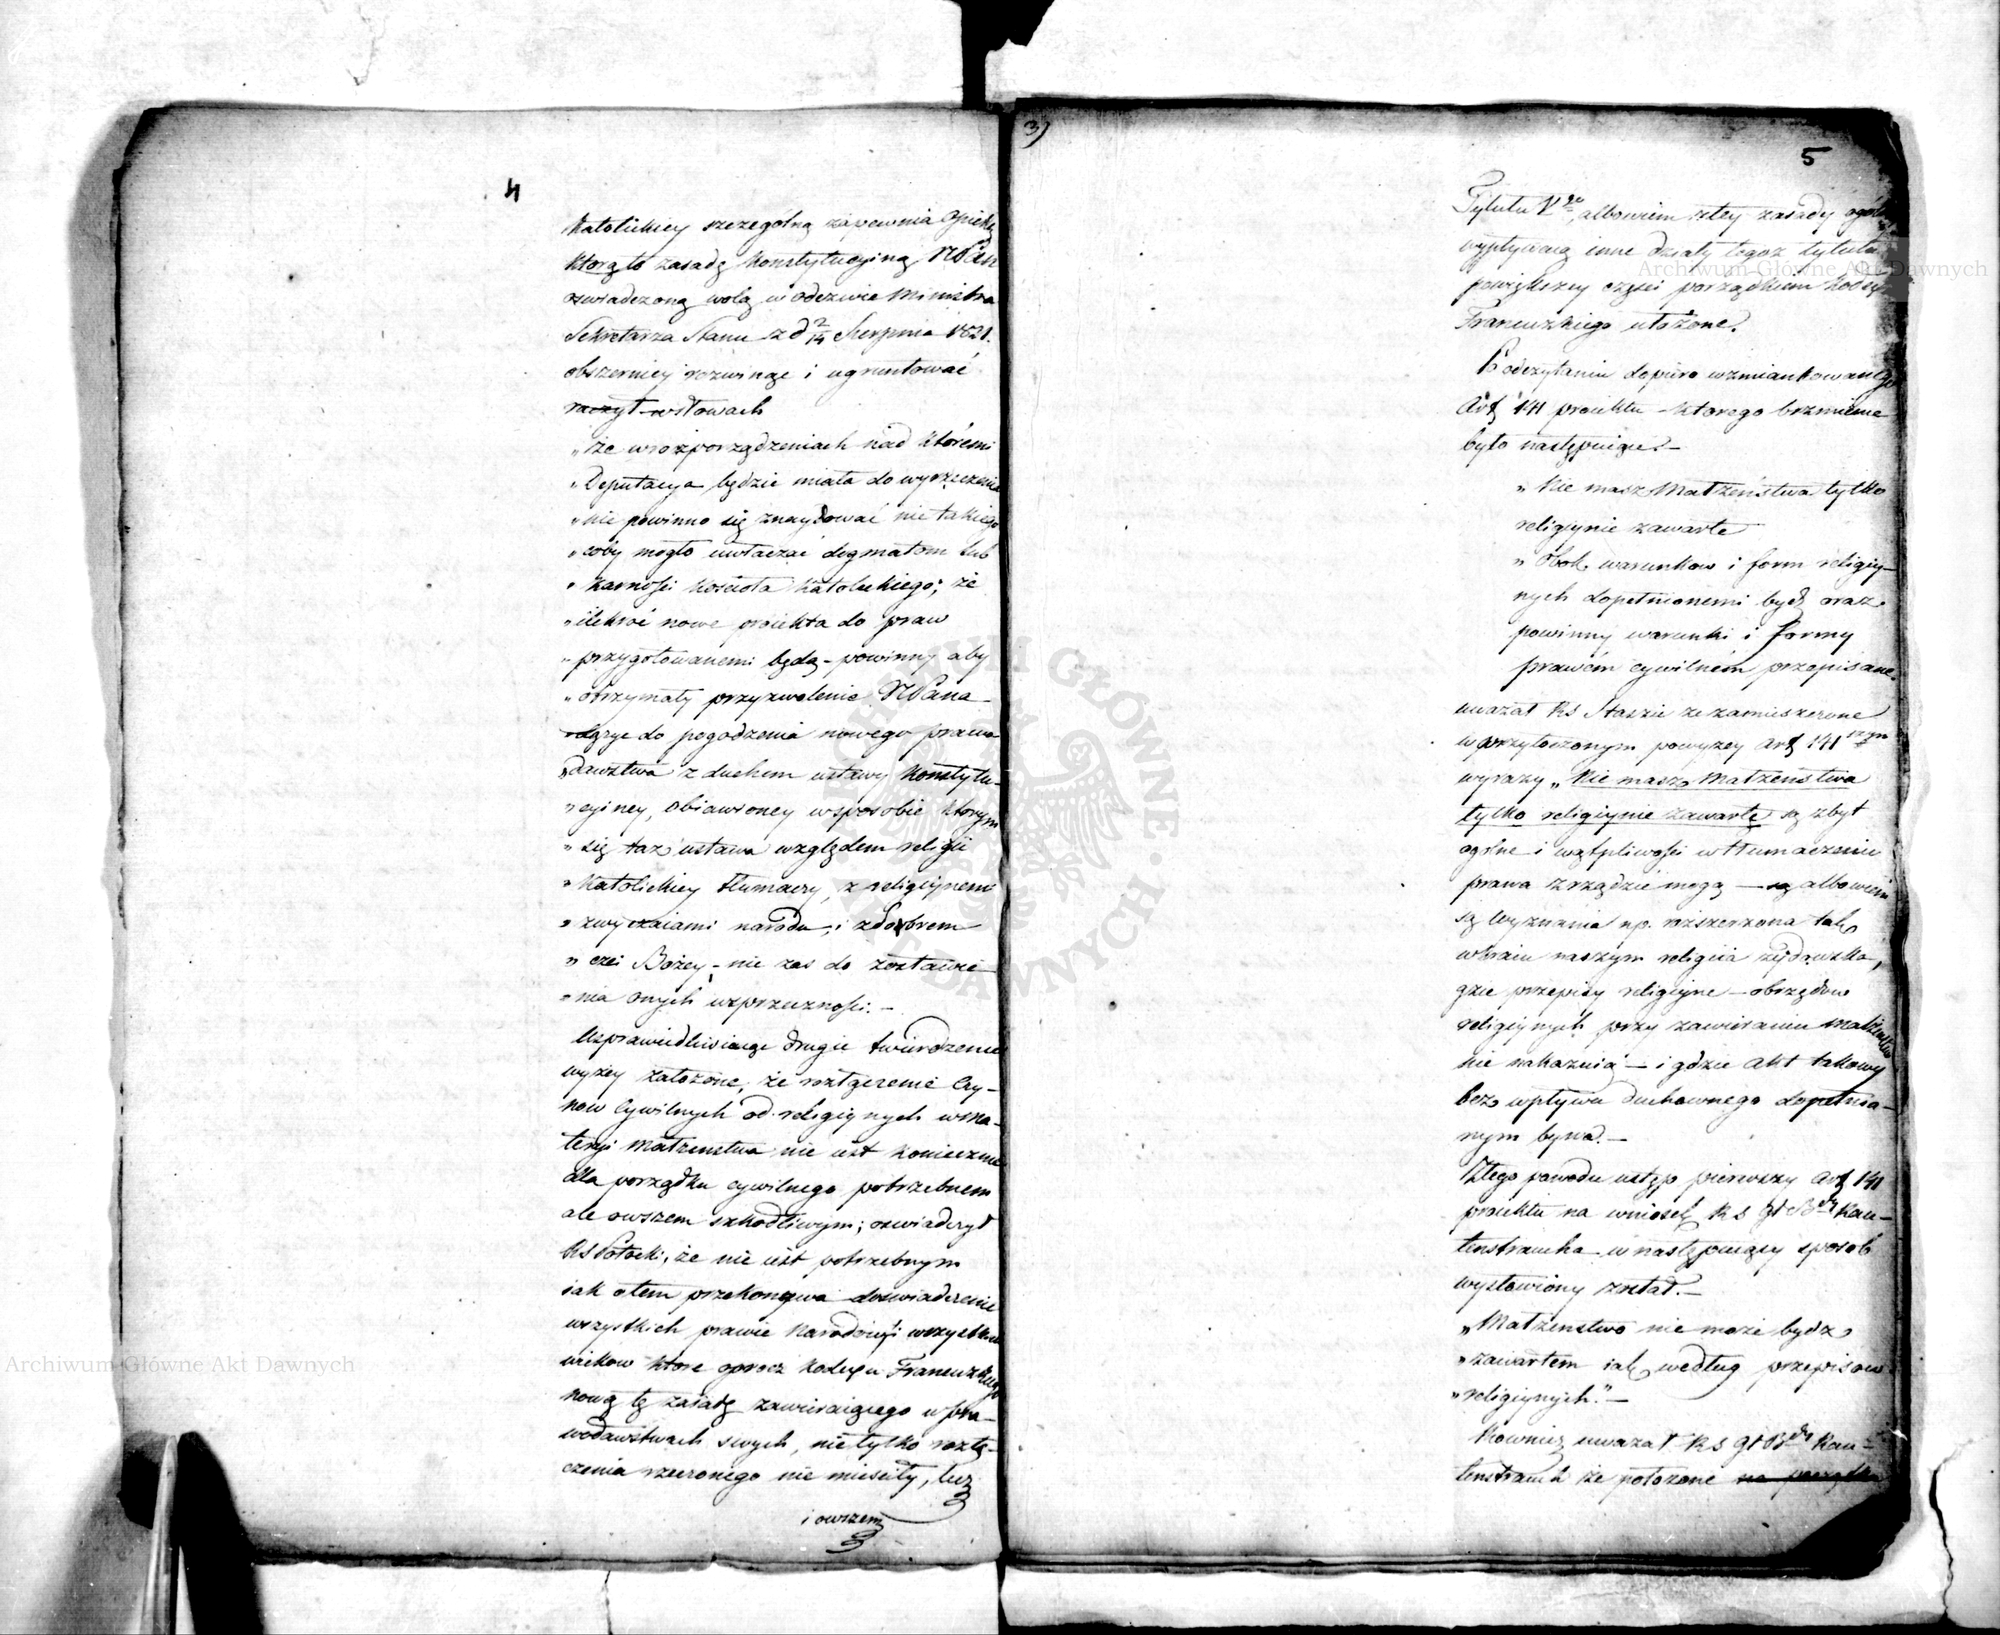 4
Katolickiey szczegolną zapewnia Opiekę
którą to zasadę Konstytucyiną NPan
oswiadczoną wolą w odezwie Ministra
Sekretarza Stanu z d 2/14 Sierpnia 1821.
obszerniey rozwinąć i ugruntować
raczył w słowach
„że w rozporządzeniach nad któremi
„Deputacya będzie miała do wyrzeczenia
„nie powinno się znaydować nic takiego
„coby mogło uwłaczać dogmatom lub
„karności Kościoła Katolickiego; że
„ilekroć nowe proiekta do praw
„przygotowanemi będą – powinny aby
„otrzymały przyzwolenie NPana –
dążyć do pogodzenia nowego prawo
„dawstwa z duchem ustawy Konstytu-
„cyiney, obiawioney w sposobie którym
„się taż ustawa względem religii
„Katolickiey tłumaczy, z religiynemi
„zwyczaiami narodu, i z dobrem
„czci Bożey – nie zas do zostawie-
„nia onych w sprzeczności. –
Usprawiedliwiaiąc drugie twierdzenie
wyżey założone, że rozłączenie Czy-
now Cywilnych od religiynych w ma-
teryi Małżeństwa nie iest koniecznie
dla porządku cywilnego potrzebnem
ale owszem szkodliwym; oswiadczył
RS Potocki, że nie iest potrzebnym
iak o tem przekonywa doswiadczenie
wszystkich prawie Narodów i wszystkich
wiekow które oprocz Kodexu Francuzkiego
nową tę zasadę zawieraiącego w pra-
wodawstwach swych, nie tylko rozłą-
czenia rzeczonego nie miesciły, lecz
i owszem
3)
5
Tytułu Vgo, albowiem z tey zasady ogólney
wypływaią inne działy tegoż tytułu
powiększey części porządkiem Kodexu
Francuzkiego ułożone.
Po odczytaniu dopiero wzmiankowanego
Art 141 proiektu – którego brzmienie
było następuiące. –
„Nie masz Małżeństwa tylko
religiynie zawarte
„Obok warunkow i form religiy-
nych dopełnionemi bydź oraz
powinny warunki i formy
prawem cywilném przepisane.
uważał RS Staszic że zamieszczone
w przytoczonym powyżey Art 141szym
wyrazy „Nie masz Małżeństwa
tylko religiynie zawarte są zbyt
ogólne i wątpliwości w tłumaczeniu
prawa zrządzić mogą – są albowiem
są wyznania np. rozszerzona tak
w kraiu naszym religiia żydowska,
gdzie przepisy religiyne – obrzędow
religiynych przy zawieraniu Małżeństw
nie nakazuią – i gdzie Akt takowy
bez wpływu duchownego dopełnia-
nym bywa. –
Z tego powodu ustęp pierwszy Art 141
proiektu na wniosek RS Gł Bdy Kau-
tenstraucha w następuiący sposob
wysłowiony został. –
„Małżeństwo nie może bydź
„zawartem iak według przepisow
„religiynych." –
Rownież uważał RS Gł Bdy Kau-
tenstrauch że położone na początku